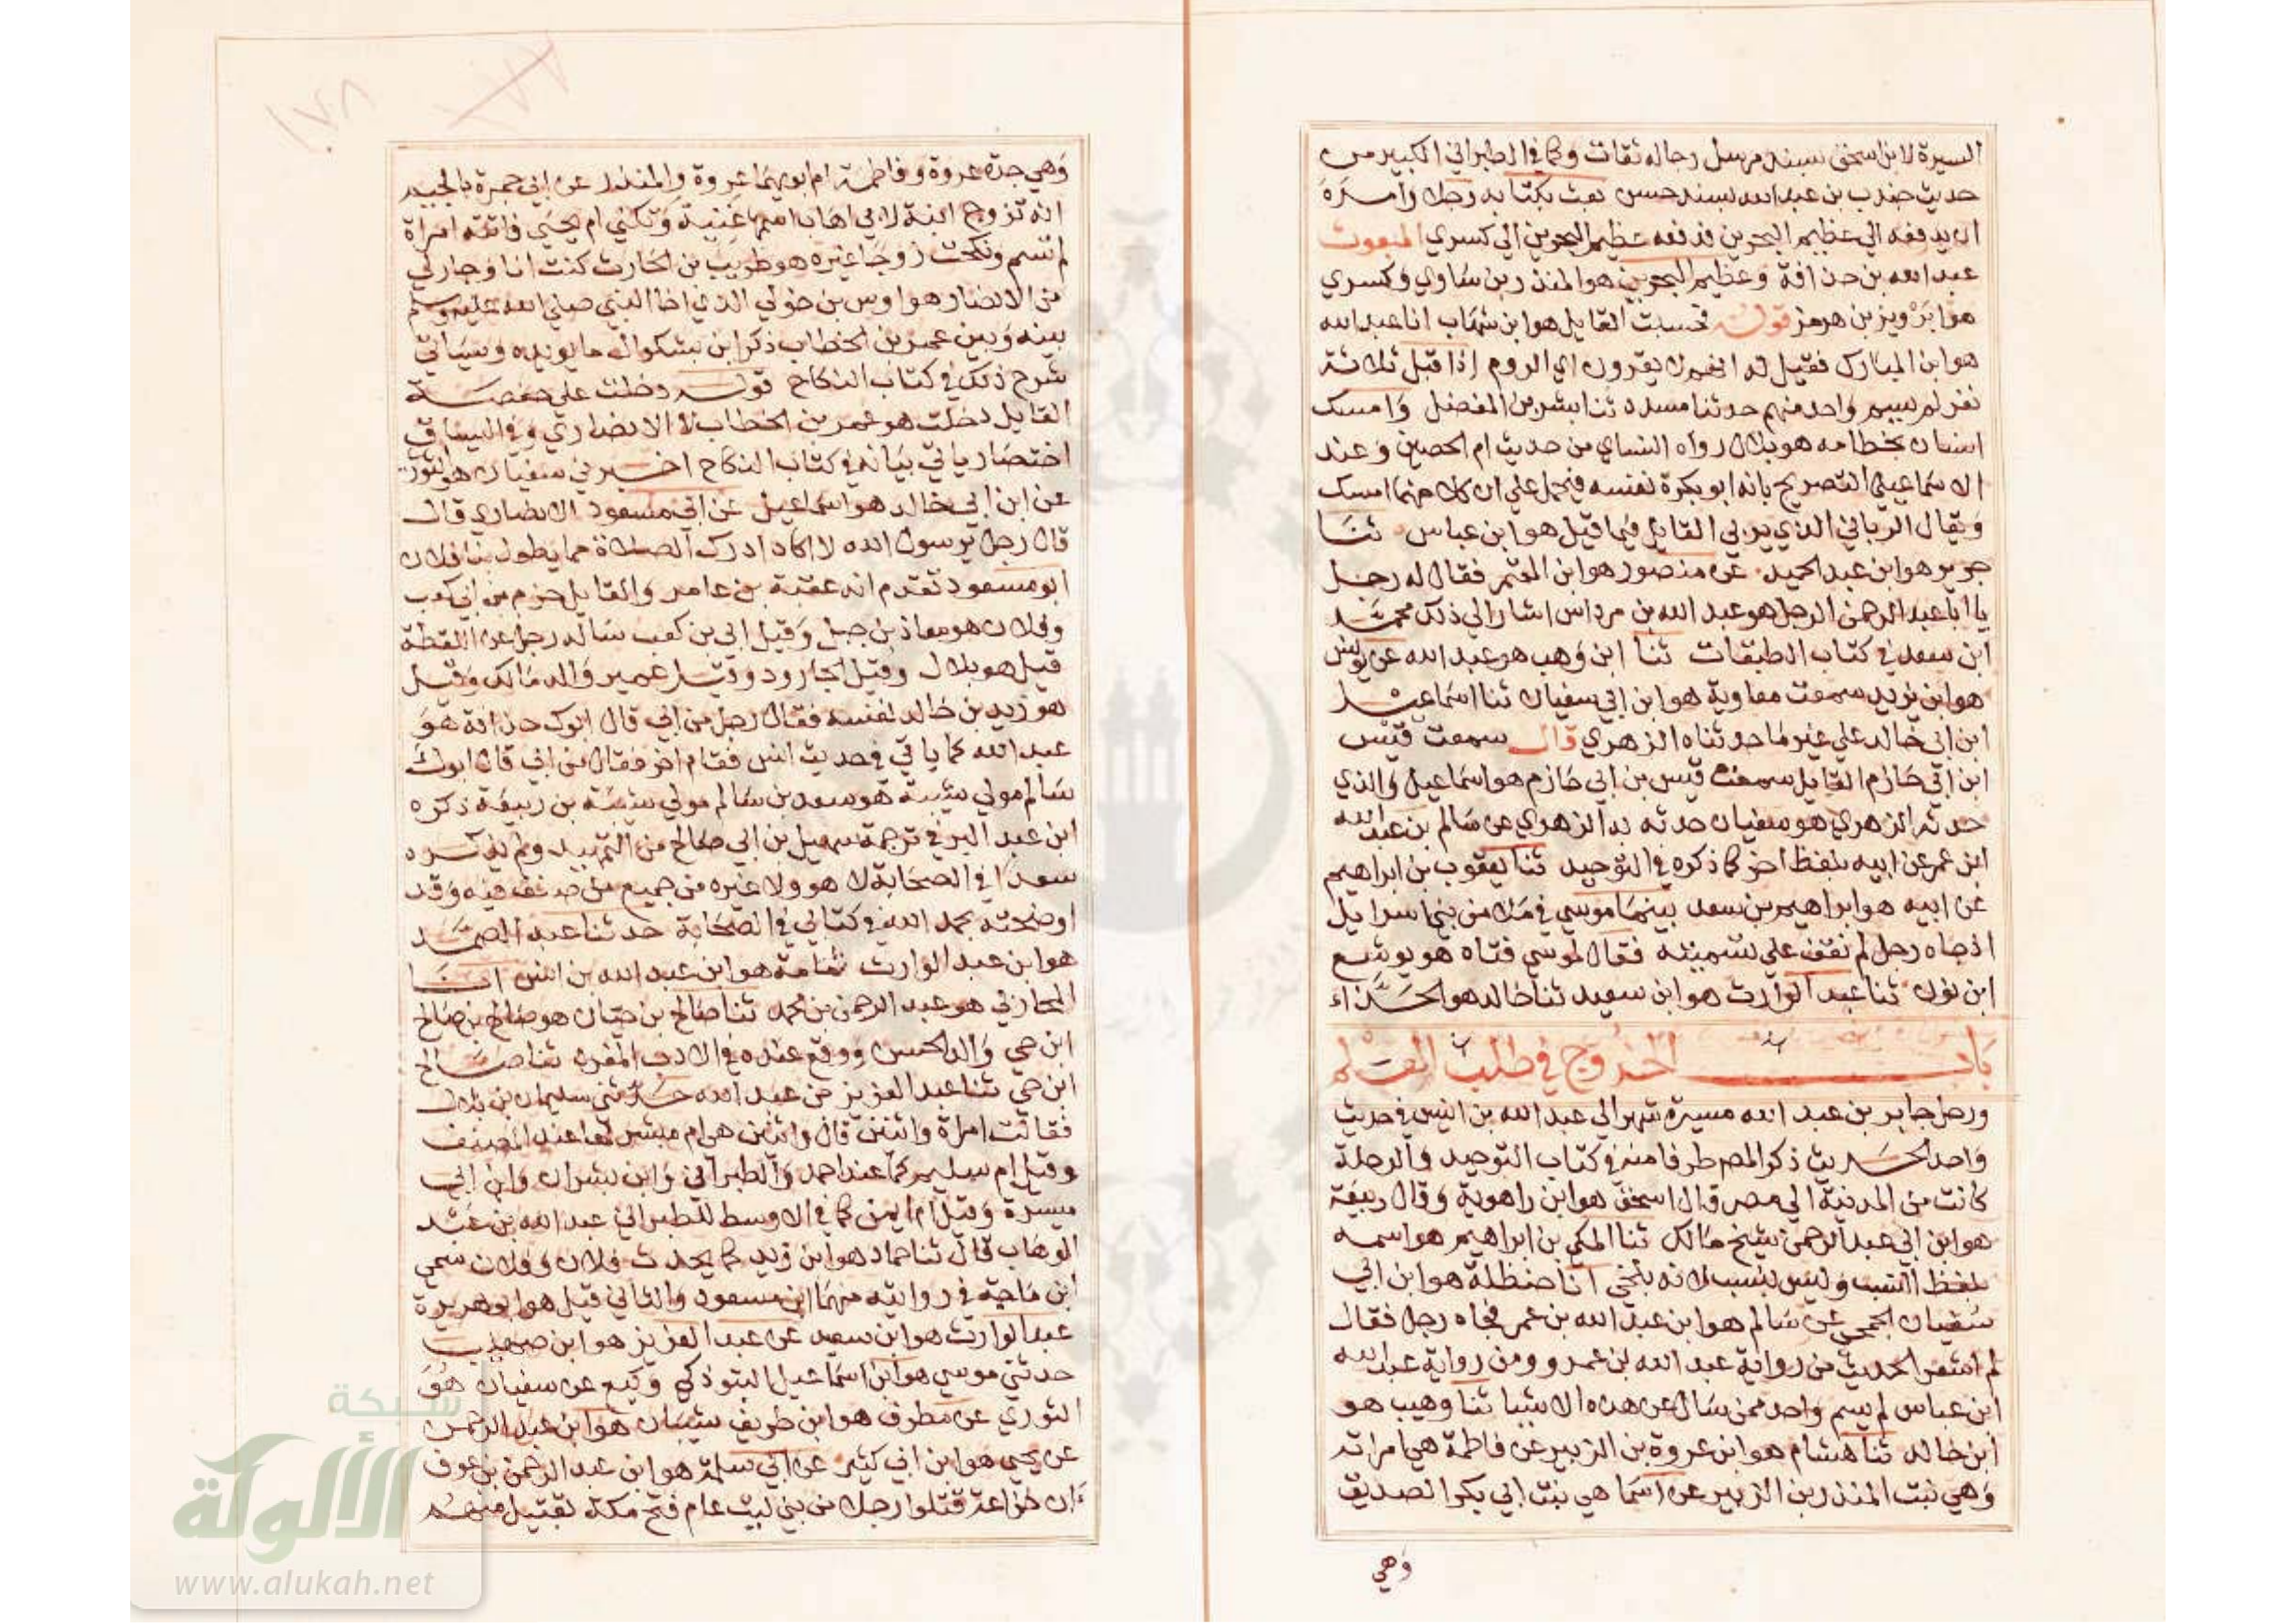 السيرة لابن اسحق بسند مرسل رجاله ثقات وكما في الطبراني الكبير من
حديث جندب بن عبد الله بسند حسن بعث بكتابه رجلا وامره
ان يدفعه الي عظيم البحرين فدفعه عظيم البحرين الي كسري المبعوث
عبد الله بن حذافة وعظيم البحرين هو المنذر بن ساوي وكسري
هو ابرويز بن هرمز قوله فحسبت القايل هو ابن شهاب انا عبد الله
هو ابن المبارك فقيل له انهم لا يقرون اي الروم إذا قبل ثلاثة
نفر لم يسم واحد منهم حدثنا مسدد ثنا بشر بن المفضل وامسك
انسان بخطامه هو بلال رواه النساي من حديث ام الحصين وعند
الاسماعيلي التصريح بانه ابو بكرة نفسه فيحمل علي ان كلا منهما امسك
ويقال الرباني الذي يربي القايل فيما قيل هو ابن عباس ثنا
جرير هو ابن عبد الحميد عن منصور هو ابن المعتمر فقال له رجل
يا ابا عبد الرحمن الرجل هو عبد الله بن مرداس اشار الي ذلك محمد
ابن سعد في كتاب الطبقات ثنا ابن وهب هو عبد الله عن يونس
هو ابن يزيد سمعت معاوية هو ابن ابي سفيان ثنا اسماعيل
ابن ابي خالد علي غير ما حدثناه الزهري قال سمعت قيس
ابن ابي حازم القايل سمعت قيس بن ابي حازم هو اسماعيل والذي
حدثه الزهري هو سفيان حدثه به الزهري عن سالم بن عبد الله
ابن عمر عن ابيه بلفظ اخر كما ذكره في التوحيد ثنا يعقوب بن ابراهيم
عن ابيه هو ابراهيم بن سعد بينما موسي في ملا من بني اسرايل
اذ جاه رجل لم نقف علي تسميته فقال لموسي فتاه هو يوشع
ابن نون ثنا عبد الوارث هو ابن سعيد ثنا خالد هو الحذاء
باب الخروج في طلب العلم
ورحل جابر بن عبد الله مسيرة شهر الي عبد الله بن انيس في حديث
واحد الحديث ذكر المصم طرفا منه في كتاب التوحيد والرحلة
كانت من المدينة الي مصر قال اسحق هو ابن راهوية وقال ربيعة
هو ابن ابي عبد الرحمن شيخ مالك ثنا المكي بن ابراهيم هو اسمه
بلفظ النسب وليس بنسب لانه بلخي انا حنظلة هو ابن ابي
سفيان الجمحي عن سالم هو ابن عبد الله بن عمر فجاه رجل فقال
لم اشعر الحديث من رواية عبد الله بن عمرو ومن رواية عبد الله
ابن عباس لم يسم واحد ممن سال عن هذه الاشيا ثنا وهيب هو
ابن خالد ثنا هشام هو ابن عروة بن الزبير عن فاطمة هي امراته
وهي بنت المنذر بن الزبير عن اسما هي بنت ابي بكر الصديق
وهي
وهي جدة عروة وفاطمة ام ابويهما عروة والمنذر عن ابي جمرة بالجيم
انه تزوج ابنة لابي اهاب اسمها غنية وتكني ام يحيي فاتته امراة
لم تسم ونكحت زوجا غيره هو ظريب بن الحارث كنت انا وجار لي
من الانصار هو اوس بن خولي الذي اخا النبي صلي الله عليه وسلم
بينه وبين عمر بن الخطاب ذكر ابن بشكوال ما يويده وسياتي
شرح ذلك في كتاب النكاح قوله دخلت علي حفصة
القايل دخلت هو عمر بن الخطاب لا الانصاري وفي السياق
اختصار ياتي بيانه في كتاب النكاح اخبرني سفيان هو الثوري
عن ابن ابي خالد هو اسماعيل عن ابي مسعود الانصاري قال
قال رجل يرسول الله لا اكاد ادرك الصلاة مما يطول بنا فلان
ابو مسعود تقدم انه عقبة بن عامر والقايل حزم بن ابي كعب
وفلان هو معاذ بن جبل وقيل ابي بن كعب ساله رجل عن اللقطة
قيل هو بلال وقيل الجارود وقيل عمير والد مالك وقيل
هو زيد بن خالد نفسه فقال رجل من ابي قال ابوك حذافة هو
عبد الله كما ياتي في حديث انس فقام اخر فقال من ابي قال ابوك
سالم مولي شيبة هو سعد بن سالم مولي شيبة بن ربيعة ذكره
ابن عبد البر في ترجمة سهيل بن ابي صالح من التمهيد ولم يذكره
سعدا في الصحابة لا هو ولا غيره من جميع من صنف فيه وقد
اوضحته بحمد الله في كتابي في الصحابة حدثنا عبد الصمد
هو ابن عبد الوارث ثمامة هو ابن عبد الله بن انس انا
المحاربي هو عبد الرحمن بن محمد ثنا صالح بن حيان هو صالح بن صالح
ابن حي والد الحسن ووقع عنده في الادب المفرد ثنا صالح
ابن حي ثنا عبد العزيز بن عبد الله حدثني سليمان بن بلال
فقالت امراة واثنين قال واثنين هي ام مبشر كما عند المصنف
وقيل ام سليم كما عند احمد والطبراني وابن بشران وابن ابي
ميسرة وقيل ام ايمن كما في الاوسط للطبراني عبد الله بن عبد
الوهاب قال ثنا حماد هو ابن زيد كما يحدث فلان وفلان سمي
ابن ماجة في روايته منهما ابن مسعود والثاني قيل هو ابو هريرة
عبد الوارث هو ابن سعيد عن عبد العزيز هو ابن صهيب
حدثني موسي هو ابن اسماعيل التبوذكي وكيع عن سفيان هو
الثوري عن مطرف هو ابن طريف شيبان هو ابن عبد الرحمن
عن يحيي هو ابن ابي كثير عن ابي سلمة هو ابن عبد الرحمن بن عوف
ان خزاعة قتلوا رجلا من بني ليث عام فتح مكة بقتيل منهم
شبكة
الألوكة
www.alukah.net